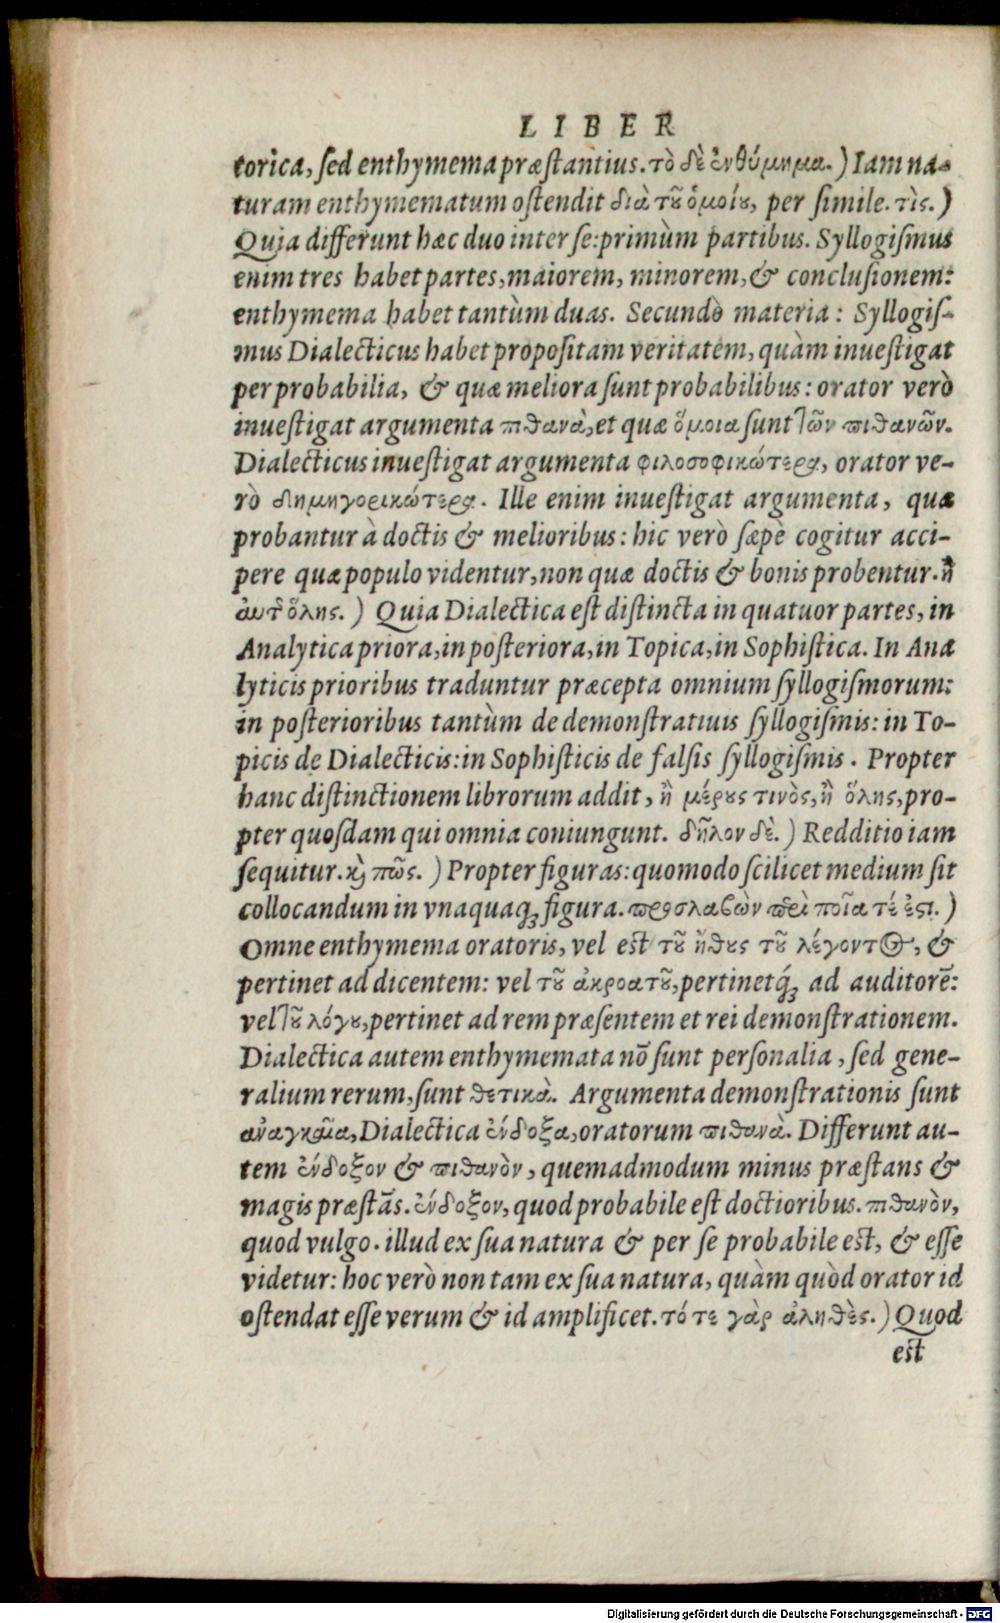 LIBER
torica, ſed enthymema præſtantius. τὸ δὲ ἐνθύμημα.) Iam na-
turam enthymematum oſtendit διὰ τȣ͂ ὁμοίȣ, per ſimile. τὶς.)
Quia differunt hæc duo inter ſe: primùm partibus. Syllogiſmus
enim tres habet partes, maiorem, minorem, & concluſionem:
enthymema habet tantùm duas. Secundò materia: Syllogiſ-
mus Dialecticus habet propoſitam veritatem, quàm inueſtigat
per probabilia, & quæ meliora ſunt probabilibus: orator verò
inueſtigat argumenta πιθανὰ, et quæ ὅμοια ſunt τῶν πιθανῶν.
Dialecticus inueſtigat argumenta φιλοσοφικώτερα, orator ve-
rò δημηγορικώτερα. Ille enim inueſtigat argumenta, quæ
probantur à doctis & melioribus: hic verò ſæpè cogitur acci-
pere quæ populo videntur, non quæ doctis & bonis probentur. ἢ
αυτ῀ ὅλης.) Quia Dialectica eſt diſtincta in quatuor partes, in
Analytica priora, in poſteriora, in Topica, in Sophiſtica. In Ana
lyticis prioribus traduntur præcepta omnium ſyllogiſmorum:
in poſterioribus tantùm de demonſtratiuis ſyllogiſmis: in To-
picis de Dialecticis: in Sophiſticis de falſis ſyllogiſmis. Propter
hanc diſtinctionem librorum addit, ἢ μέρȣς τινὸς, ἢ ὅλης, pro-
pter quoſdam qui omnia coniungunt. δῆλον δὲ.) Redditio iam
ſequitur. κ̀ πῶς.) Propter figuras: quomodo ſcilicet medium ſit
collocandum in vnaquaq; figura. προσλαβὼν περὶ ποῖα τέ ἐςι.)
Omne enthymema oratoris, vel eſt τȣ͂ ἤθȣς τȣ͂ λέγοντος, &
pertinet ad dicentem: vel τȣ͂ ἀκροατȣ͂, pertinetq́; ad auditorē:
vel τȣ͂ λόγȣ, pertinet ad rem præſentem et rei demonſtrationem.
Dialectica autem enthymemata nō ſunt perſonalia, ſed gene-
ralium rerum, ſunt θετικὰ. Argumenta demonſtrationis ſunt
αναγκαῖα, Dialectica ἐνδοξα, oratorum πιθανὰ. Differunt au-
tem ἐνδοξον & πιθανὸν, quemadmodum minus præſtans &
magis præſtās. ἐνδοξον, quod probabile eſt doctioribus. πιθανὸν,
quod vulgo. illud ex ſua natura & per ſe probabile eſt, & eſſe
videtur: hoc verò non tam ex ſua natura, quàm quòd orator id
oſtendat eſſe verum & id amplificet. τό τε γὰρ ἀληθὲς.) Quod
eſt
Digitalisierung gefördert durch die Deutsche Forschungsgemeinschaft - DFG